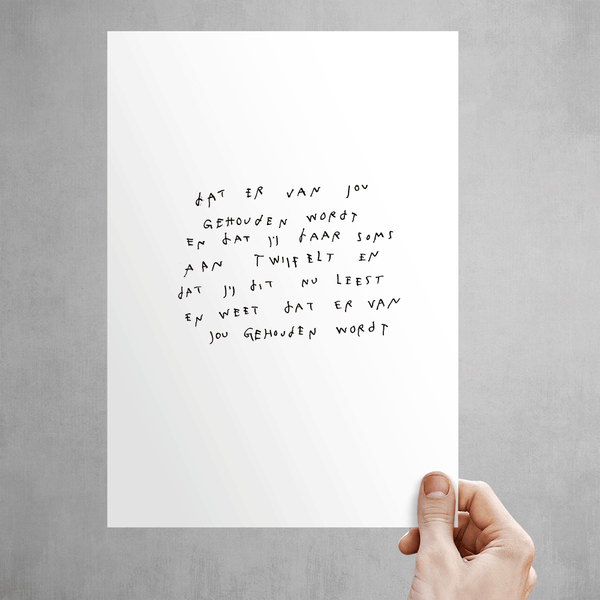 dAT ER VAN JOU
GEHOUdEN WORdT
EN dAT JIJ dAAR SOMS
AAN TWIJFELT EN
dAT JIJ dIT NU LEEST
EN WEET dAT ER VAN
JOU GEHOUdEN WORdT